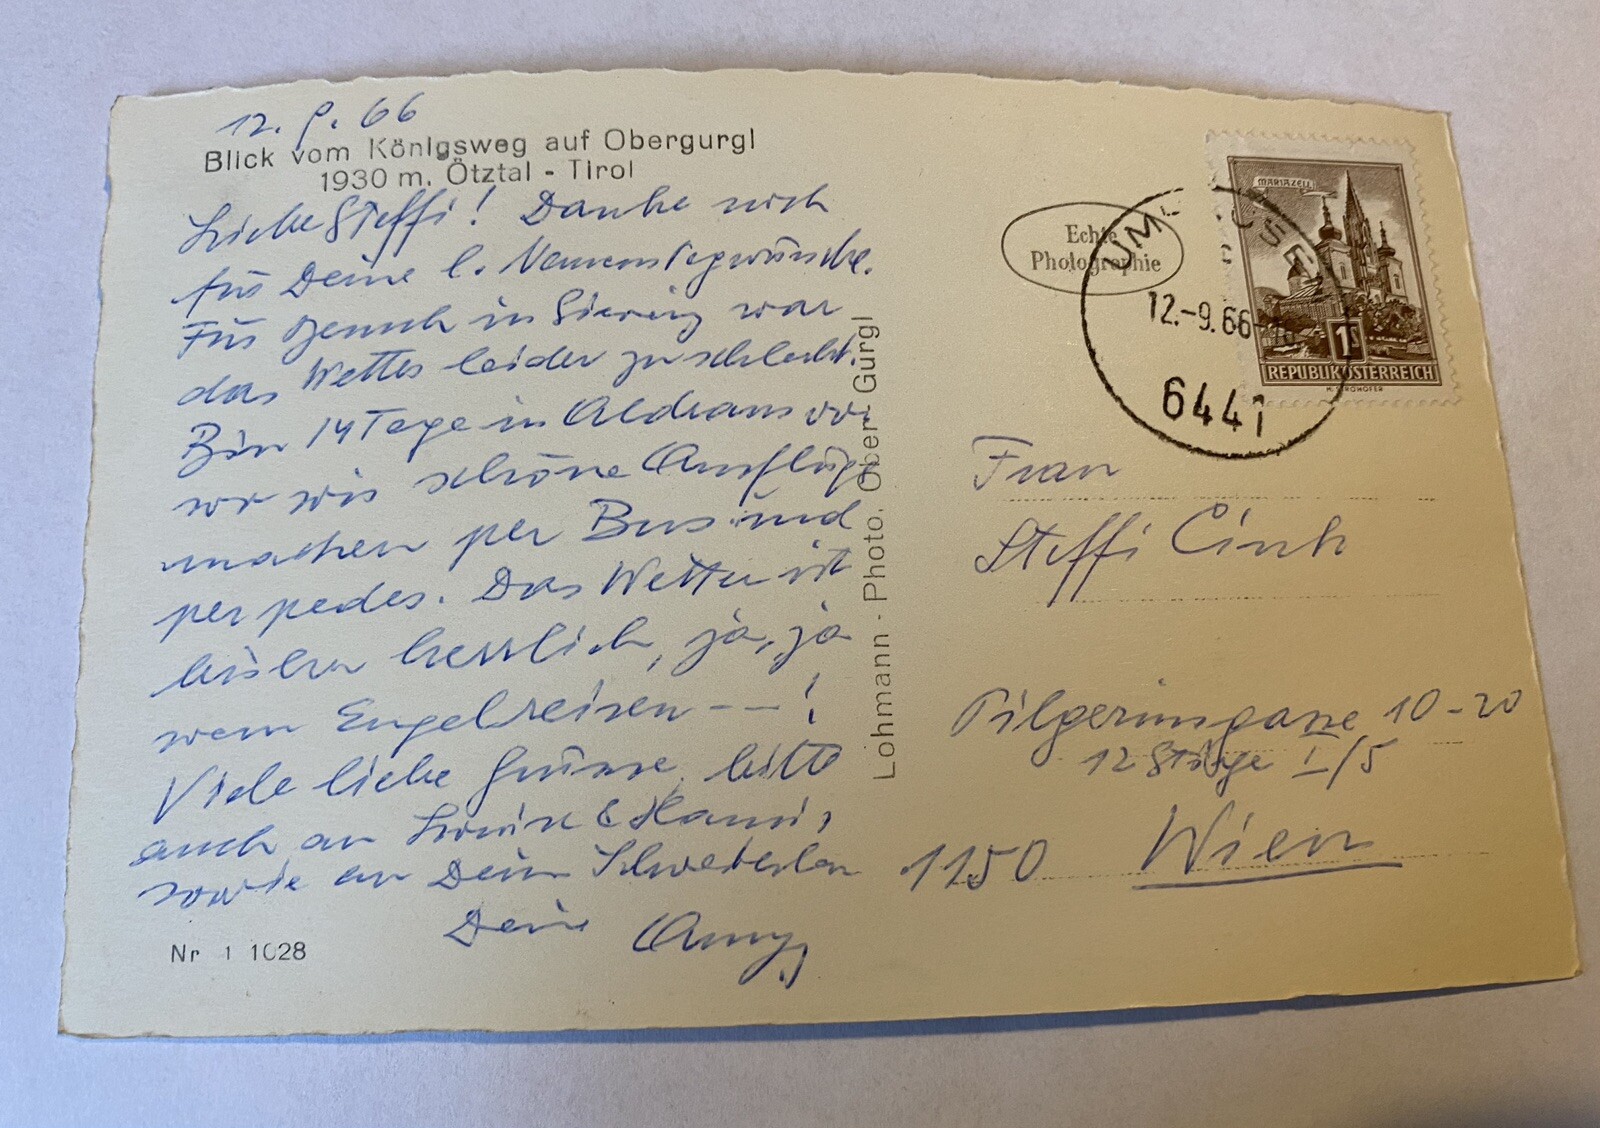 12. 9. 66
Blick vom Königsweg auf Obergurgl
1930 m. Ötztal - Tirol
Liebe Steffi! Danke noch
für Deine l. Namenstagwünsche.
Für Besuch in Sievring war
das Wetter leider zu schlecht.
Bin 14 Tage in Aldrans von
wo wir schöne Ausflüge
machen per Bus und
per pedes. Das Wetter ist
bisher herrlich, ja, ja
wenn Engel reisen - - !
Viele liebe Grüsse, bitte
auch an Louise & Hansi,
sowie an Dein Schwesterlein
Deine Amy
Nr 1 1028
Lohmann - Photo. Ober-Gurgl
Echte
Photographie
12.-9.66
6441
MARIAZELL
1S
REPUBLIK ÖSTERREICH
Frau
Steffi
Pilgerimgasse 10-20
12 Stiege I/5
1150 Wien